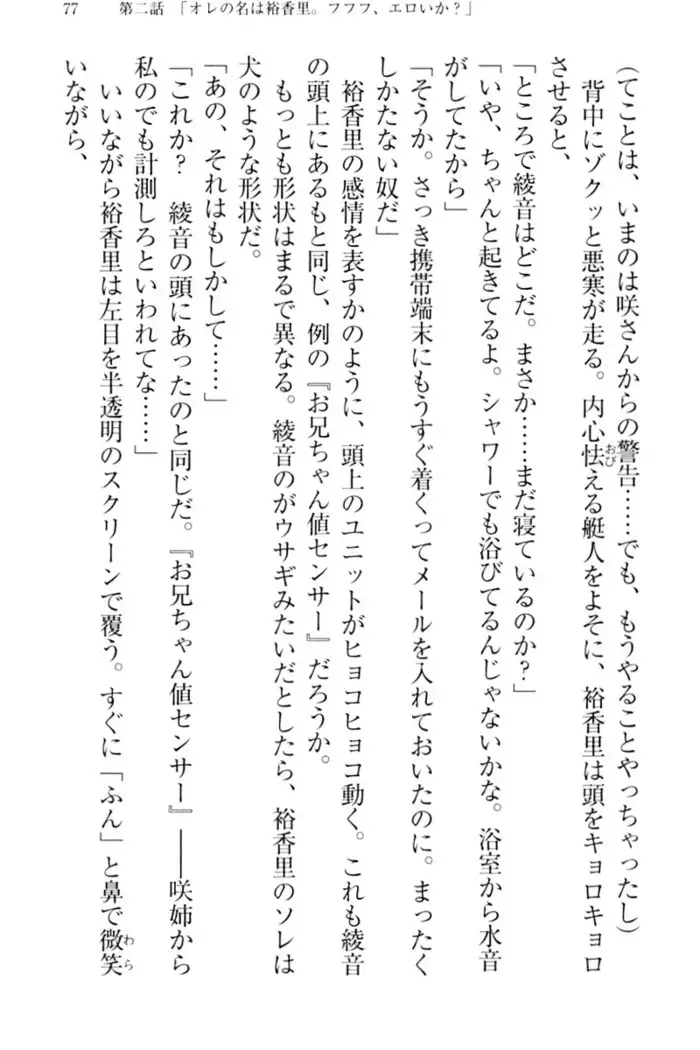 77　第二話「オレの名は裕香里。フフフ、エロいか？」
（てことは、いまのは咲さんからの警告……でも、もうやることやっちゃったし）
背中にゾクッと悪寒が走る。内心怯える艇人をよそに、裕香里は頭をキョロキョロ
させると、
「ところで綾音はどこだ。まさか……まだ寝ているのか？」
「いや、ちゃんと起きてるよ。シャワーでも浴びてるんじゃないかな。浴室から水音
がしてたから」
「そうか。さっき携帯端末にもうすぐ着くってメールを入れておいたのに。まったく
しかたない奴だ」
裕香里の感情を表すかのように、頭上のユニットがヒョコヒョコ動く。これも綾音
の頭上にあるもと同じ、例の『お兄ちゃん値センサー』だろうか。
もっとも形状はまるで異なる。綾音のがウサギみたいだとしたら、裕香里のソレは
犬のような形状だ。
「あの、それはもしかして……」
「これか？　綾音の頭にあったのと同じだ。『お兄ちゃん値センサー』――咲姉から
私のでも計測しろといわれてな……」
いいながら裕香里は左目を半透明のスクリーンで覆う。すぐに「ふん」と鼻で微笑
いながら、